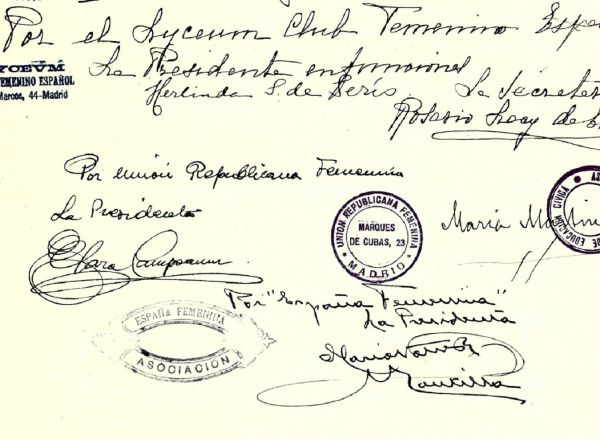 Por el Lyceum Club Femenino Espa
YCEVM
FEMENINO ESPAÑOL
Marcos, 44-Madrid
La Presidente en funciones
Herlinda G. de Peris La Secreta
Rosario Lacy de
Por Unión Republicana Femenina
La Presidenta
Clara Campoamor
UNION REPUBLICANA FEMENINA
MARQUES
DE CUBAS, 23
MADRID
María Martín
AS
DE EDUCACION CIVICA
Por "España Femenina"
La Presidenta
ESPAÑA FEMENINA
ASOCIACION